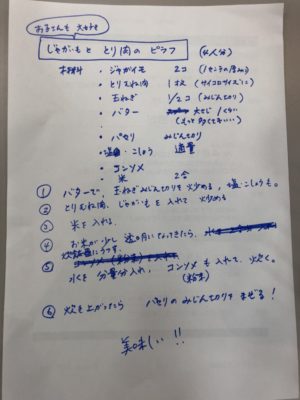 お子さんも 大好き
じゃがいもと とり肉の ピラフ (4人分)
材料 ・ジャガイモ 2コ (1センチの厚み)
・とりむね肉 1枚 (サイコロサイズに)
・玉ねぎ 1/2コ (みじん切り)
・バター 大さじ1くらい
(もっと多くてもいい)
・パセリ みじん切り
・塩・こしょう 適量
・コンソメ
・米 2合
① バターで、玉ねぎみじん切りを炒める。塩・こしょうも。
② とりむね肉、じゃがいもを 入れて 炒める
③ 米を入れる。
④ お米が少し 透明になってきたら、
炊飯釜にうつす。
⑤ 水を 分量分入れ、コンソメも入れて、炊く。
(粉末)
⑥ 炊き上がったら パセリのみじん切りを まぜる!
美味しい!!